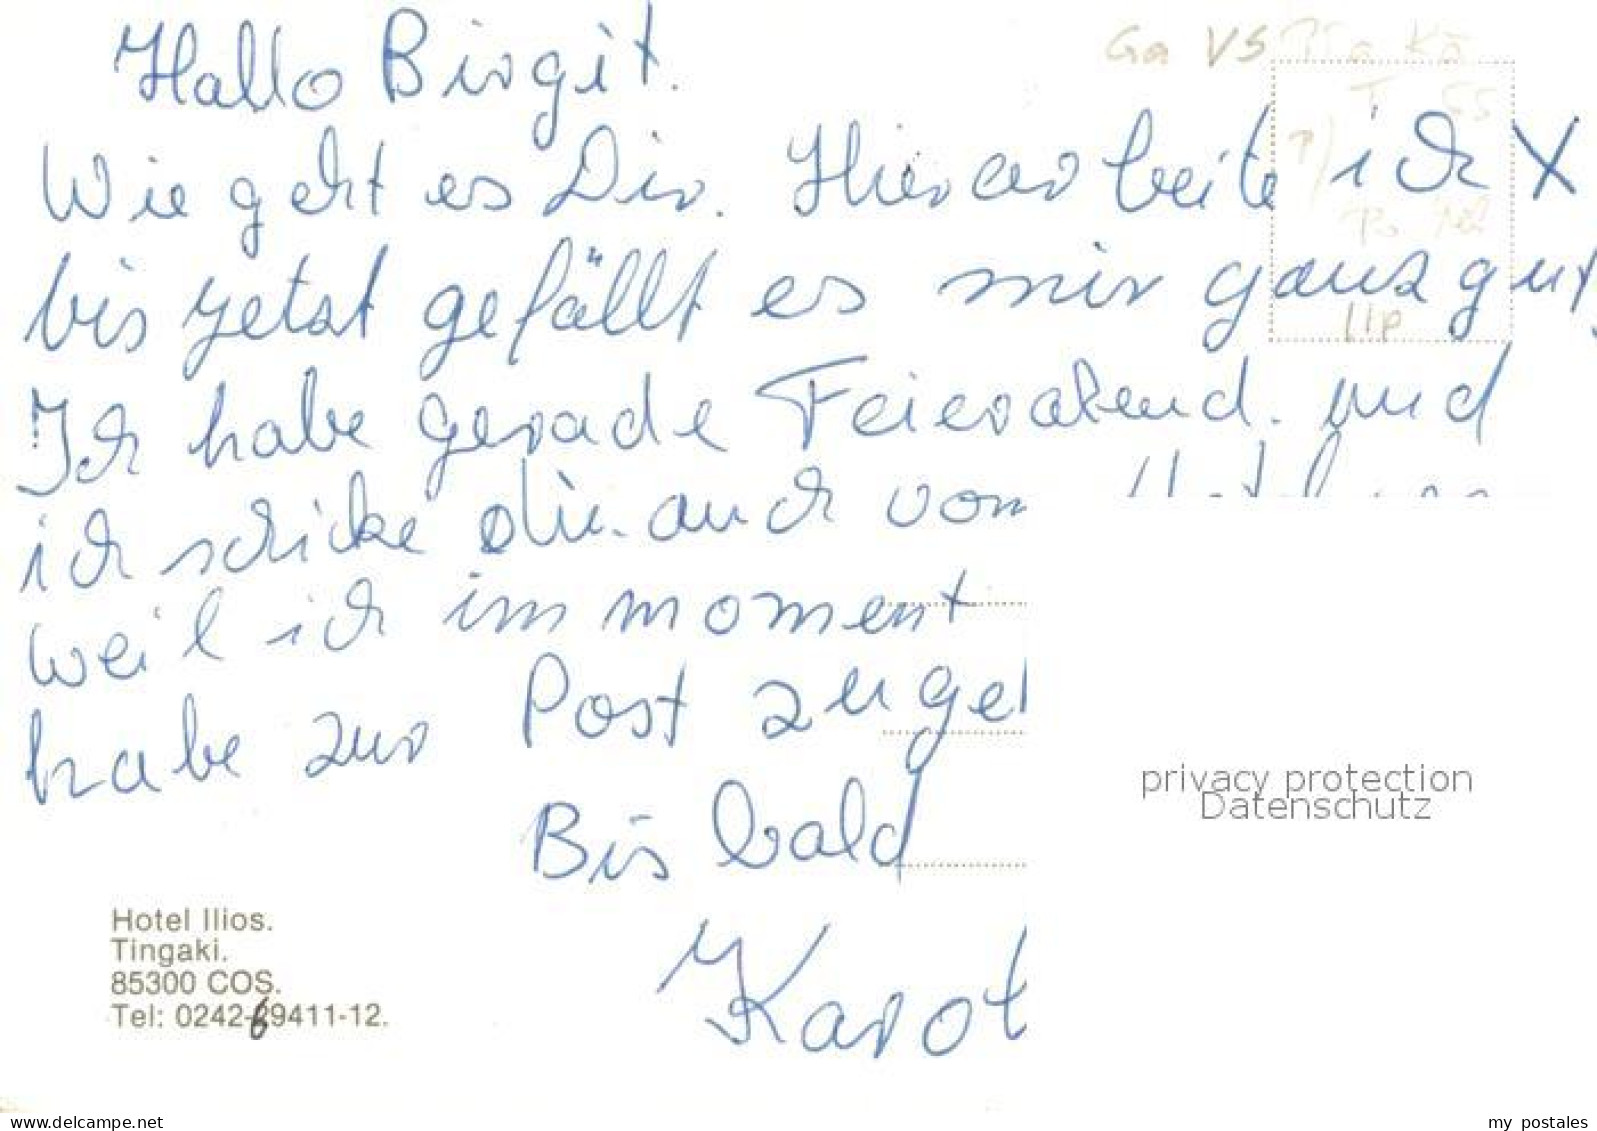 Hallo Birgit.
Wie geht es Dir. Hier arbeite ich X
bis jetzt gefällt es mir ganz gut,
Ich habe gerade Feierabend. und
ich schicke dir auch vom
weil ich im moment
habe zur Post zu gel
Bis bald
Karot
Hotel Ilios.
Tingaki.
85300 COS.
Tel: 0242-69411-12.
Ga VS
privacy protection
Datenschutz
delcampe.net
my_postales